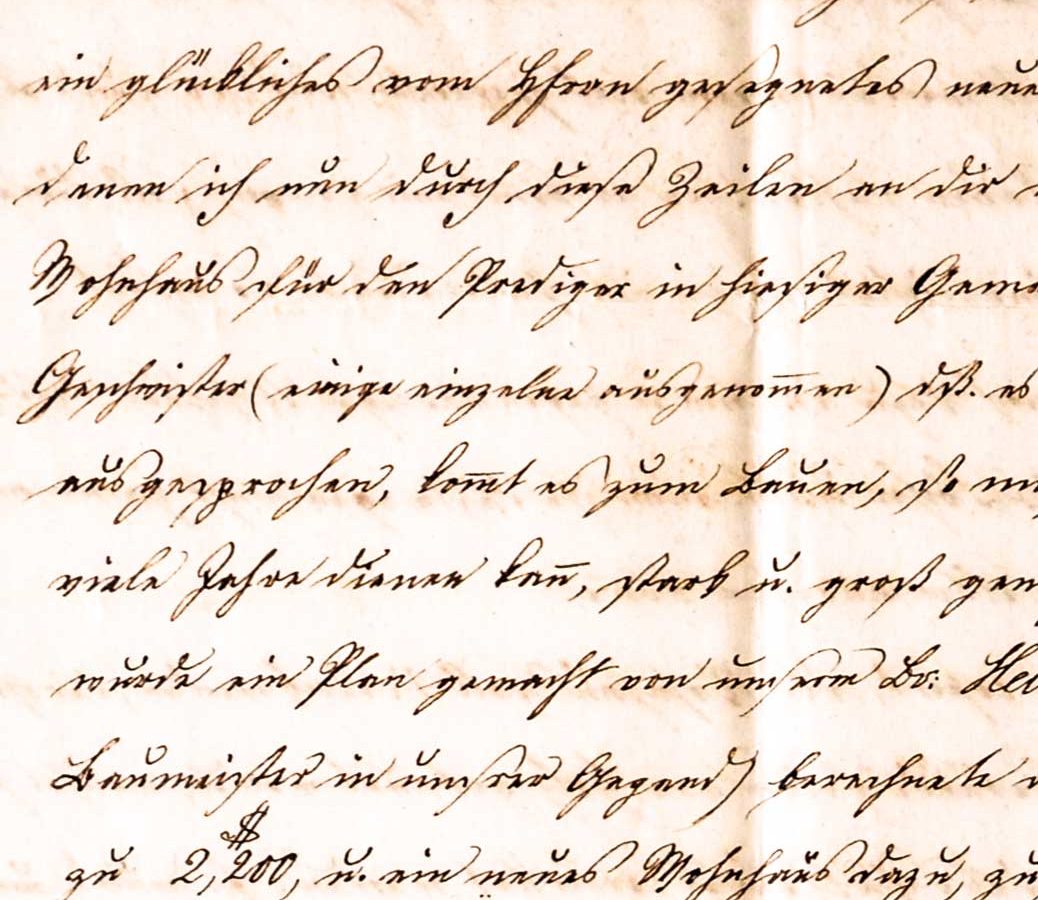 ein glückliches vom HErrn gesegnetes neue
denen ich nun durch diese Zeilen an dir
Wohnhaus für den Prediger in hiesiger Geme
Geschwister (einige einzelne ausgenom̅en) dß. es
ausgesprochen, kom̅t es zum Bauen, so m
viele Jahre dienen kan̅, stark u. groß gen
wurde ein Plan gemacht von unserm Br: Hei
Baumeister in unsrer Gegend) berechnete
zu $ 2,200, u. ein neues Wohnhaus dazu, zu